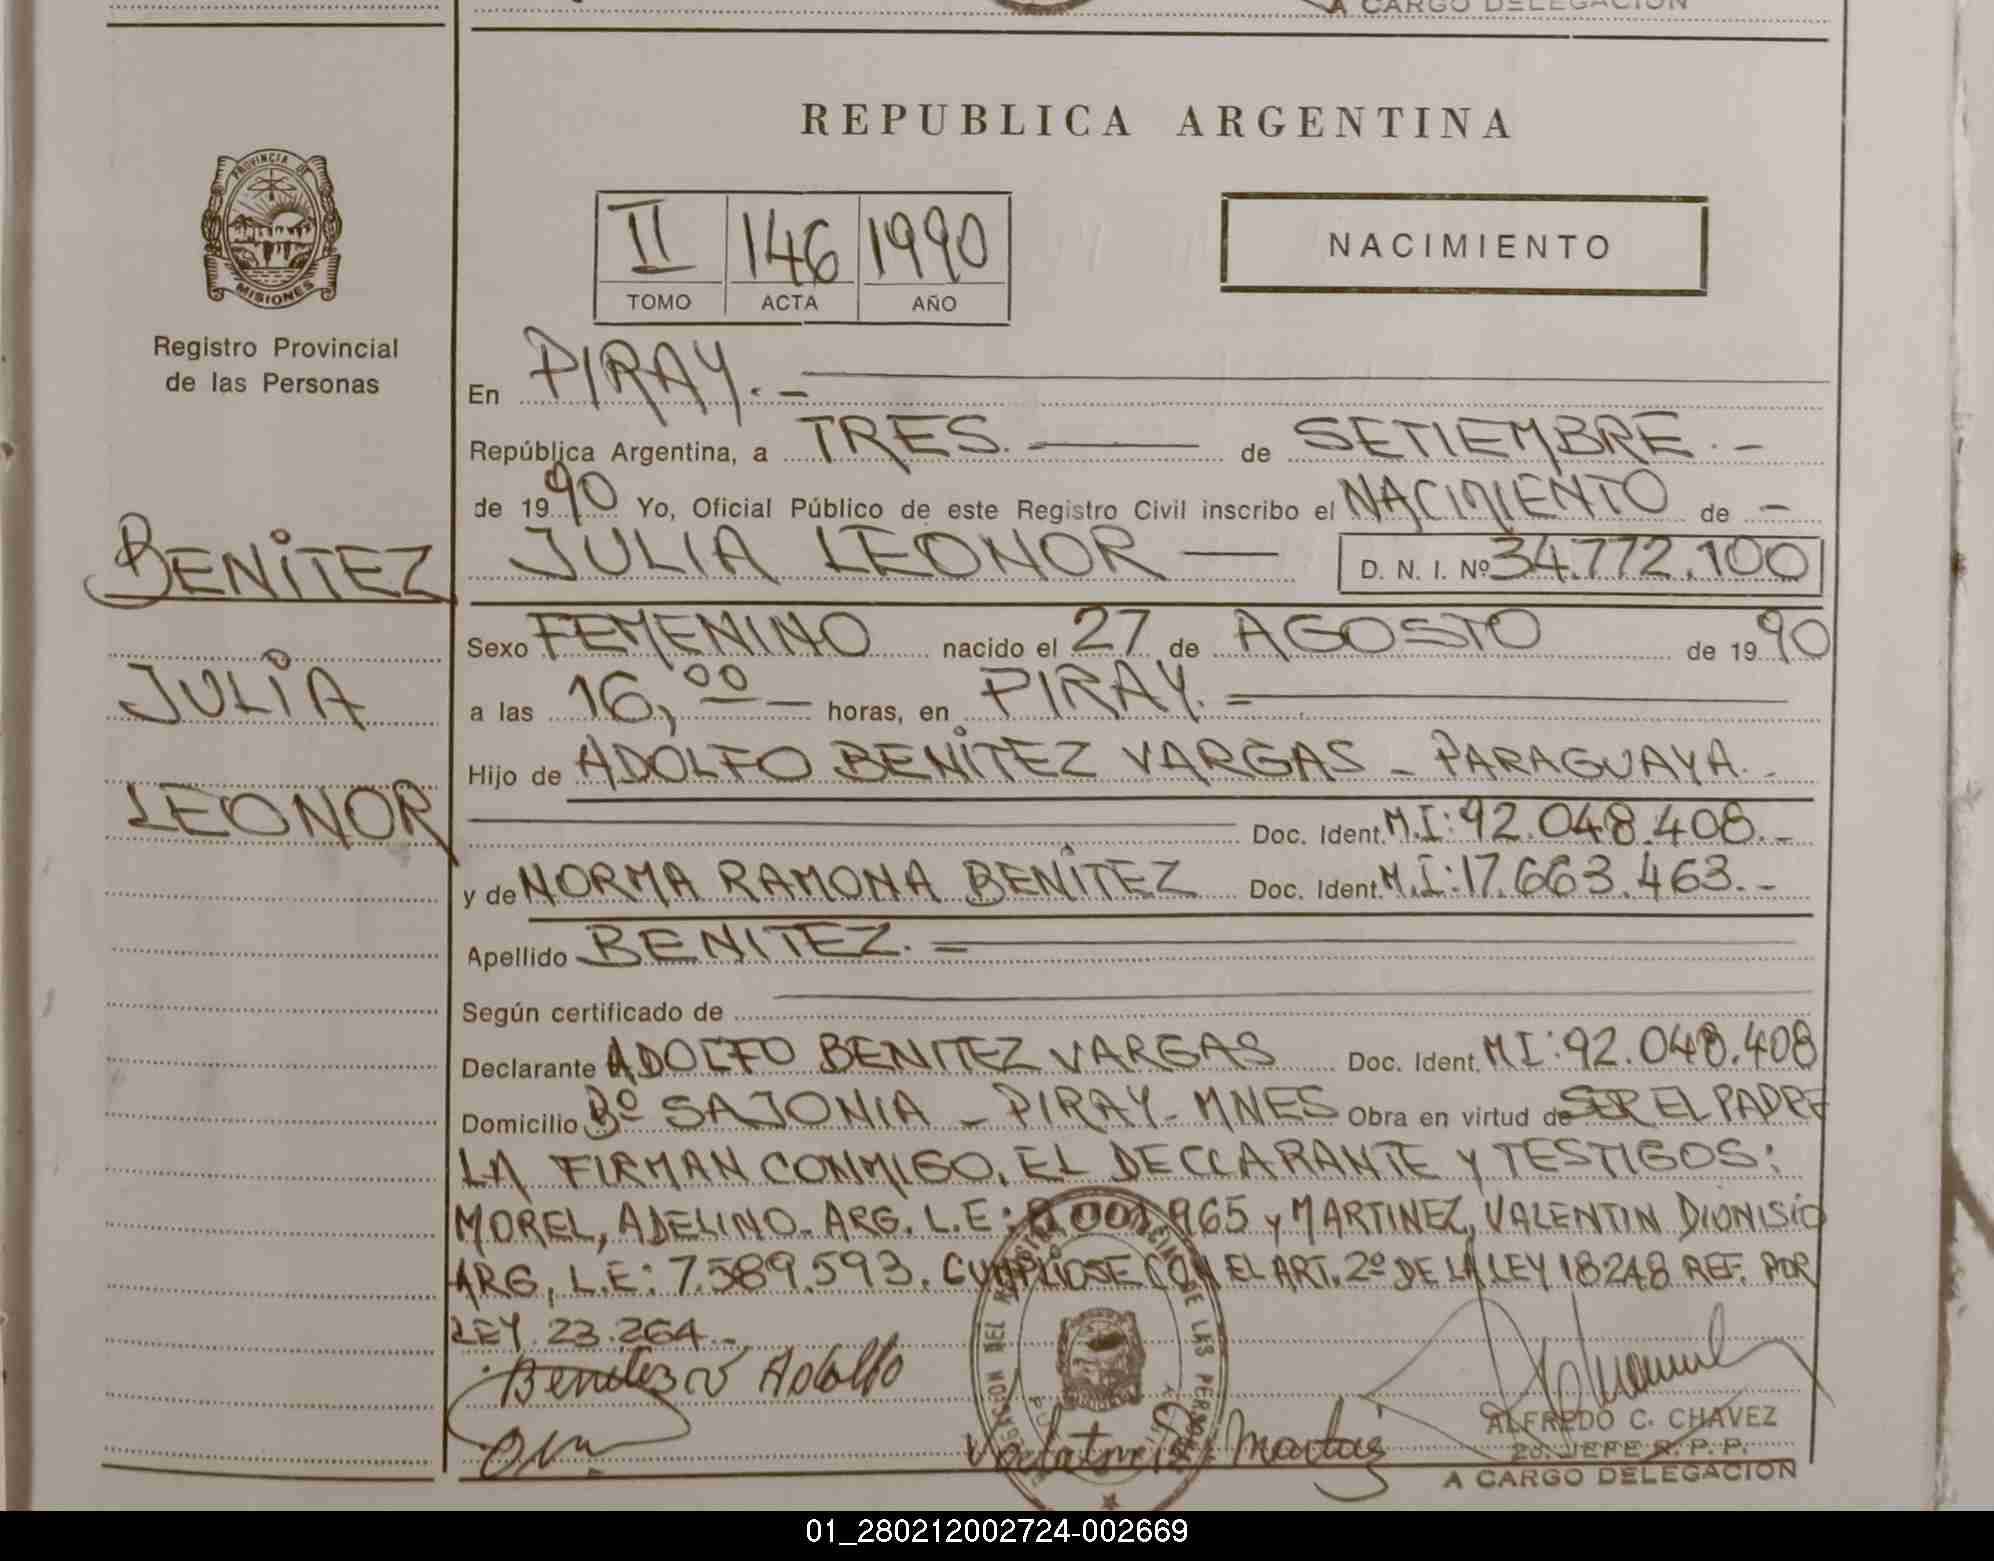 A CARGO DELEGACION
REPUBLICA ARGENTINA
PROVINCIA DE
MISIONES
Registro Provincial
de las Personas
BENITEZ
JULIA
LEONOR
II 146 1990
TOMO ACTA AÑO
NACIMIENTO
En PIRAY.-
República Argentina, a TRES. de SETIEMBRE.-
de 1990 Yo, Oficial Público de este Registro Civil inscribo el NACIMIENTO de -
JULIA LEONOR — D. N. I. Nº 34.772.100
Sexo FEMENINO nacido el 27 de AGOSTO de 1990
a las 16,00 — horas, en PIRAY.=
Hijo de ADOLFO BENITEZ VARGAS - PARAGUAYA.-
Doc. Ident. M.I:92.048.408.-
y de NORMA RAMONA BENITEZ Doc. Ident. M.I:17.663.463.-
Apellido BENITEZ.=
Según certificado de
Declarante ADOLFO BENITEZ VARGAS Doc. Ident. MI:92.048.408
Domicilio Bº SAJONIA - PIRAY - MNES Obra en virtud de SER EL PADRE
LA FIRMAN CONMIGO, EL DECLARANTE Y TESTIGOS:
MOREL, ADELINO. ARG. L.E: 965 y MARTINEZ, VALENTIN DIONISIO
ARG, L.E: 7.589.593. CUMPLIOSE CON EL ART. 2º DE LA LEY 18248 REF. POR
LEY. 23.264.-
Benitez V Adolfo
ALFREDO C. CHAVEZ
2do. JEFE R. P. P.
A CARGO DELEGACION
01_280212002724-002669